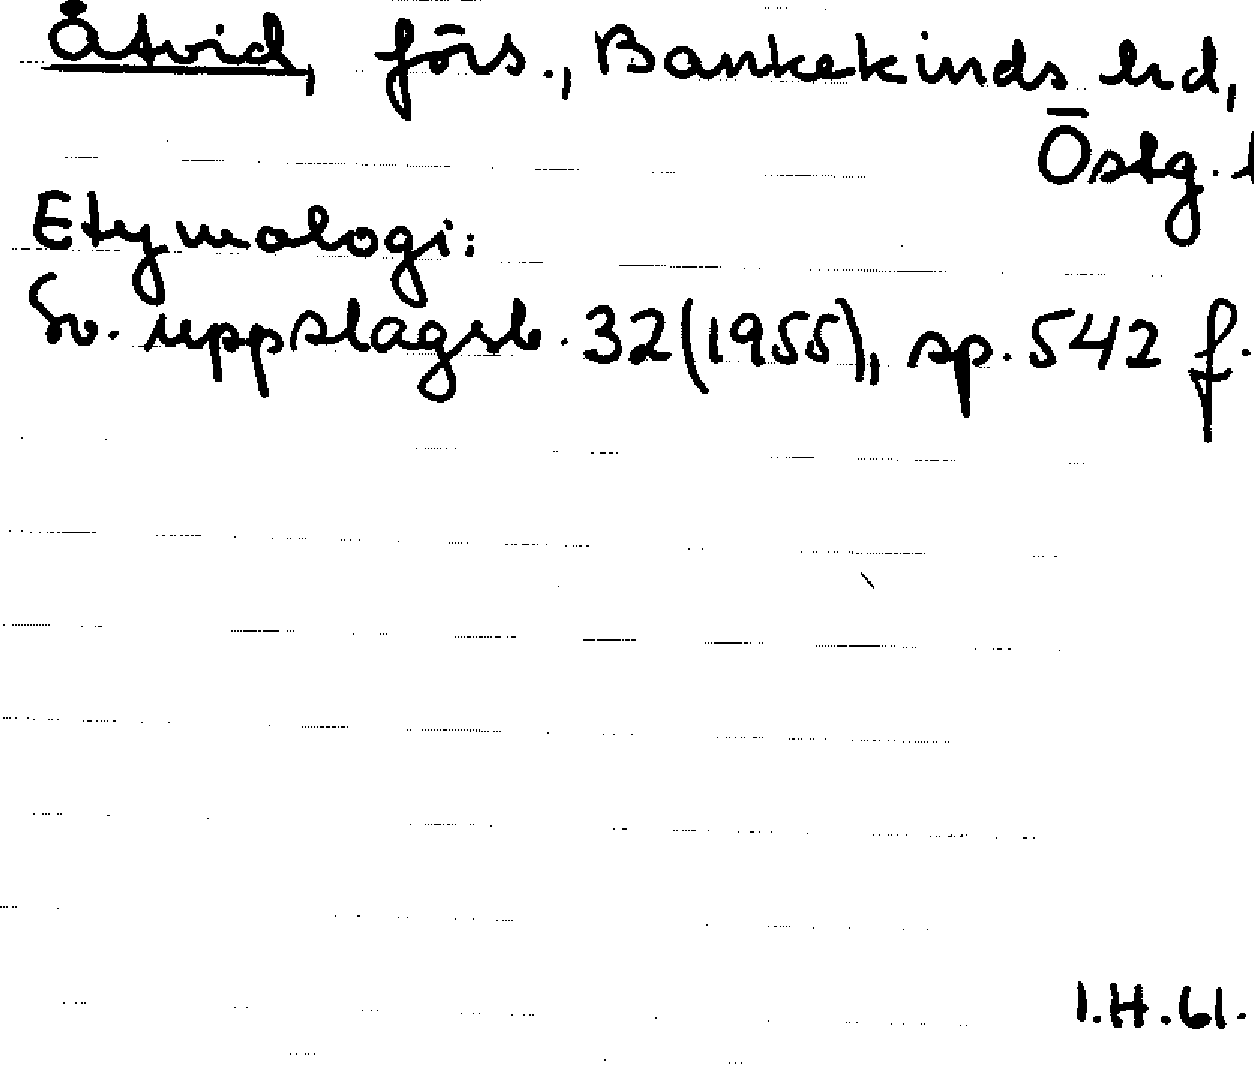 Åtvid, förs., Bankekinds hd,
Östg. l
Etymologi:
Sv. uppslagsb. 32 (1955), sp. 542 f.
I.H.61.